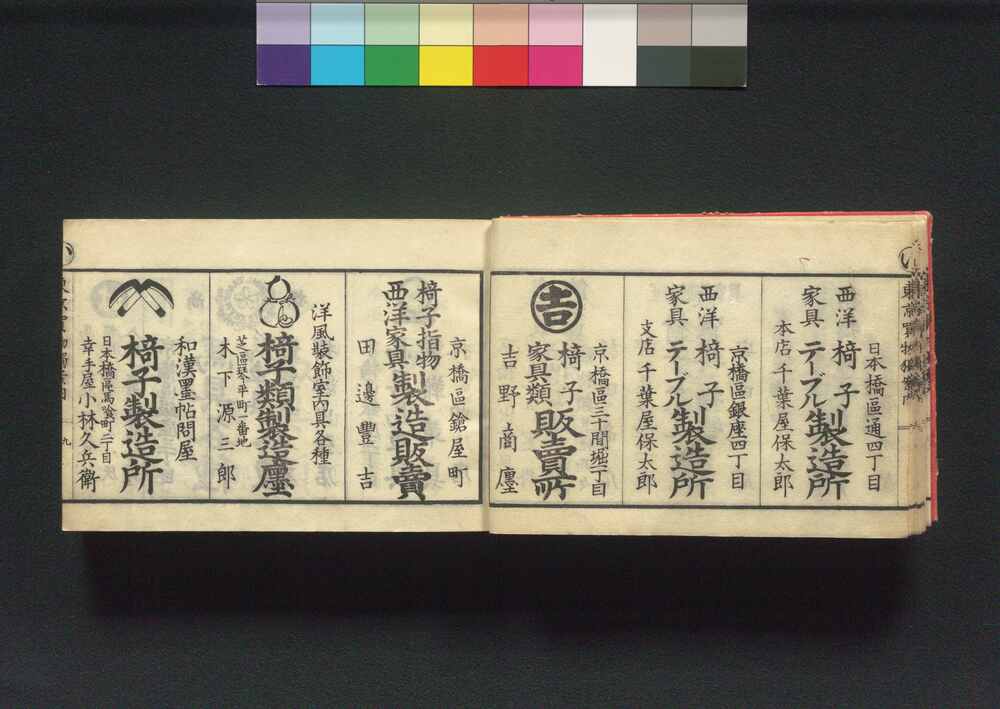 日本橋區通四丁目
西洋家具
椅子テーブル製造所
本店千葉屋保太郎
京橋區銀座四丁目
西洋家具
椅子テーブル製造所
支店千葉屋保太郎
吉
京橋區三十間堀二丁目
椅子家具類
販賣所
吉野商廛
京橋區鎗屋町
椅子指物
西洋家具
製造販賣
田邊豐吉
洋風裝飾室内具各種
椅子類製造廛
芝區琴平町一番地
木下源三郎
和漢墨帖問屋
椅子製造所
日本橋區馬喰町二丁目
幸手屋小林久兵衞
九